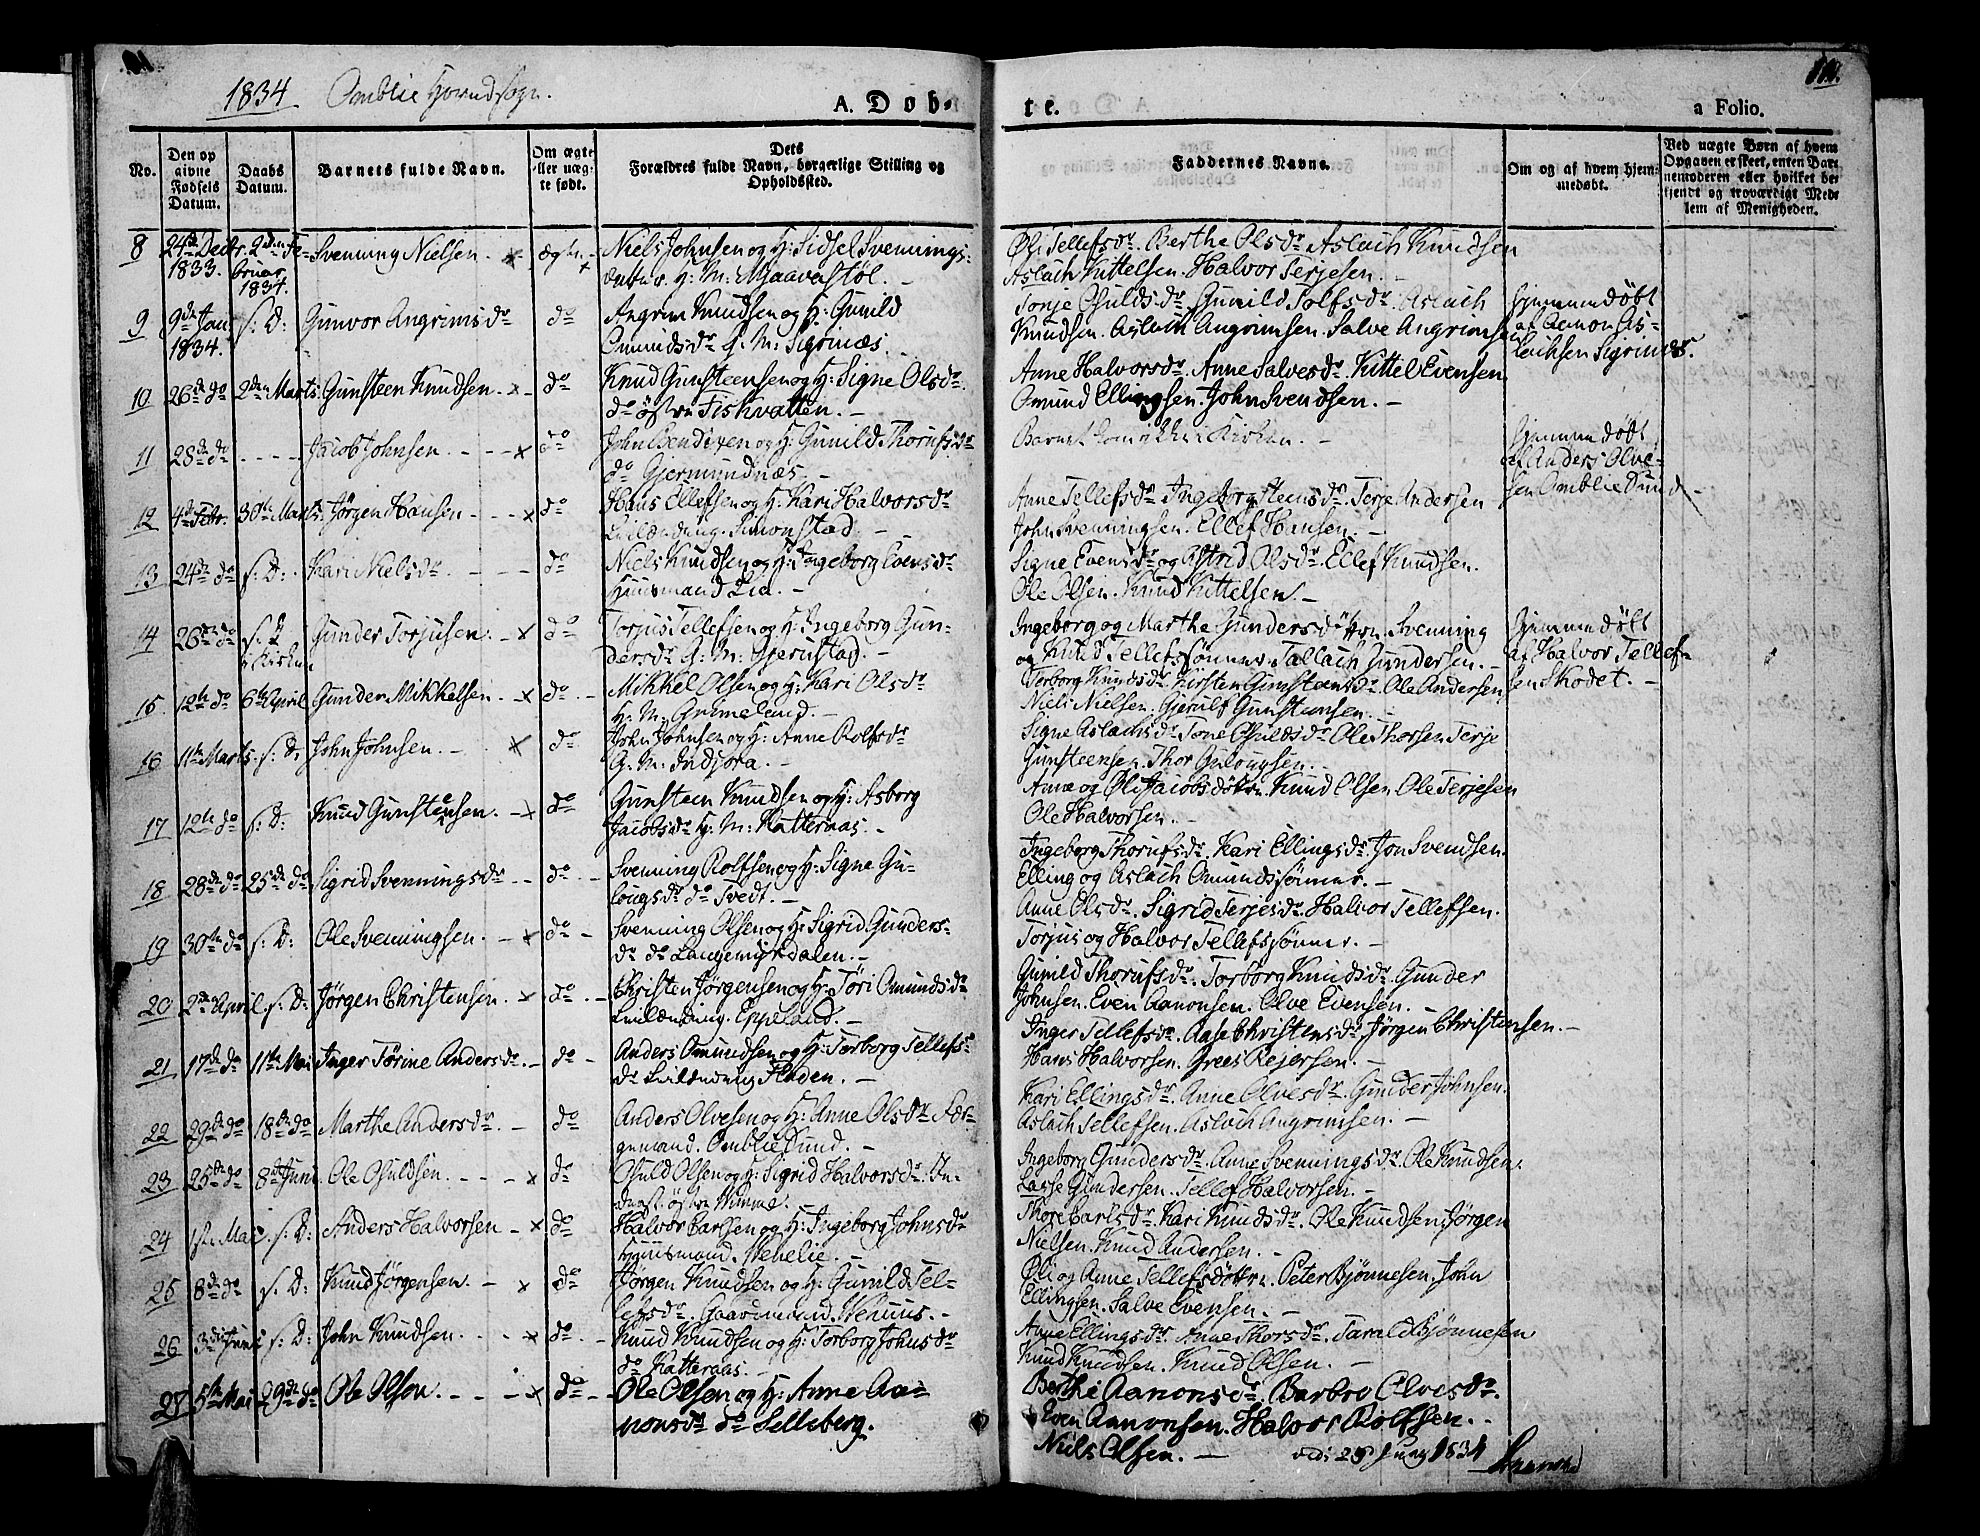 1834 Omblie Hovedsogn.
A. Døb-
te.
a Folio.
No.
Den op
givne
Fødsels
Datum.
Daabs
Datum.
Barnets fulde Navn.
Om ægte
eller uæg-
te født.
Dets
Forældres fulde Navn, borgerlige Stilling og
Opholdssted.
Faddernes Navne.
Om og af hvem hjem-
medøbt.
Ved uægte Børn af hvem
Opgaven er skeet, enten Bar-
nemoderen eller hvilket be-
kjendt og troværdigt Med-
lem af Menigheden.
8 24de Decbr. 1833. 2den Februar 1834. Svenning Nielsen. ægte
Niels Johnsen og H: Sidsel Svennings-
datter. H: M: Mjaavastøl.
Øli Tellefsdr. Berthe Olsdr. Aslach Knudsen
Aslach Kittelsen. Halvor Terjesen.
9 9de Jan 1834. s: D: Gunvor Angrimsdr do
Angrim Knudsen og H: Gunild
Omundsdr. G: M: Sigrinæs.
Tonje Osuldsdr. Gunild Rolfsdr. Aslach
Knudsen. Aslach Angrimsen. Salve Angrimsen
Hjemmedøbt
af Aanon As-
lachsen Sigrinæs.
10 26de do 2den Marts. Gunsteen Knudsen. do
Knud Gunsteensen og H: Signe Olsdr.
do östre Fiskvatten.
Anne Halvorsdr. Anne Salvesdr. Kittel Evensen
Omund Ellingsen. John Svendsen.
11 28de do Jacob Johnsen. do
John Bendixen og H: Gunild Thorufsdr
do Gjermundnæs
Barnet kom ikke i Kirken.
Hjemmedöbt
af Anders Olve-
sen Omblie Sund
12 4de Febr. 30te Marts. Jörgen Hansen do
Hans Ellefsen og H: Kari Halvorsdr
Simonstad
Anne Tellefsdr. Ingeborg Steensdr. Terje Andersen
John Svenningsen. Ellef Hansen.
13 24de do s: D: Kari Nielsdr. do
Niels Knudsen og H: Ingeborg Evensdr
Huusmand Lia.
Signe Evensdr og Astrid Olsdr. Ellef Knudsen.
Ole Olsen. Knud Kittelsen.
14 26de do s: D i Kirken Gunder Torjusen. do
Torjus Tellefsen og H: Ingeborg Gun-
dersdr. G: M: Gjernstad.
Ingeborg og Marthe Gundersdöttre. Svenning
og Knud Tellefssönner. Tallach Gundersen.
Hjemmedöbt
af Halvor Tellef-
sen Skodet.
15 12te do 6te April Gunder Mikkelsen. do
Mikkel Olsen og H: Kari Olsdr
H: M: Grimeland.
Torborg Knudsdr. Kirsten Gunsteensdr. Ole Andersen
Niels Nielsen. Gjerulf Gunsteensen.
16 11te Marts s: D: John Johnsen. do
John Johnsen og H: Anne Rolfsdr
G. M. Indjora.
Signe Aslachsdr. Tone Osuldsdr. Ole Thorsen. Terje
Gunsteensen. Thor Gulougsen.
17 12te do s: D: Knud Gunsteensen. do
Gunsteen Knudsen og H: Asborg
Jacobsdr. H: M: Katteraas.
Anne og Øli Jacobsdöttre. Knud Olsen. Ole Terjesen
Ole Halvorsen.
18 28de do 25de do Sigrid Svenningsdr do
Svenning Rolfsen og H: Signe Gu-
lougsdr. do Tvedt.
Ingeborg Thorufsdr. Kari Ellingsdr. Jon Svendsen.
Elling og Aslach Omundssönner.
19 30te do s: D: Ole Svenningsen. do
Svenning Olsen og H: Sigrid Gunders-
dr do Langemyrdalen.
Anne Olsdr. Sigrid Terjesdr. Halvor Tellefsen.
Torjus og Halvor Tellefssönner.
20 2de April. s: D: Jørgen Christensen. do
Christen Jørgensen og H: Töri Omundsdr
Eppeland.
Gunild Thorufsdr. Torborg Knudsdr. Gunder
Johnsen. Even Aanonsen. Olve Evensen.
21 17de do 11te Mai Inger Törine Andersdr. do
Anders Omundsen og H: Torborg Tellefs-
dr.
Inger Tellefsdr. Aase Christensdr. Jørgen Christensen.
Hans Halvorsen. Grees Rejersen.
22 29de do 18de do Marthe Andersdr. do
Anders Olvesen og H: Anne Olsdr Fær-
gemand. Omblie Sund.
Kari Ellingsdr. Anne Olvesdr. Gunder Johnsen.
Aslach Tellefsen. Aslach Angrimsen.
23 25de do 8de Juni Ole Osuldsen. do
Osuld Olsen og H: Sigrid Halvorsdr. In-
derst östre
Ingeborg Gundersdr. Anne Svenningsdr. Ole Knudsen.
Lasse Gundersen. Tellef Halvorsen.
24 1ste Mai. s: D: Anders Halvorsen do
Halvor Larssen og H: Ingeborg Johnsdr
Huusmand. Vehelie.
Thore Carlsdr. Kari Knudsdr. Ole Knudsen. Jørgen
Nielsen. Knud Andersen.
25 8de do s. D: Knud Jörgensen. do
Jørgen Knudsen og H: Gunild Tel-
lefsdr. Gaardmand. Nævnæs.
Øli og Anne Tellefsdöttre. Peter Bjønnesen. John
Ellingsen. Salve Evensen.
26 3die Juni s: D: John Knudsen. do
Knud Knudsen og H: Torborg Johnsdr
do Katteraas.
Anne Ellingsdr. Anne Thorsdr. Tarald Bjönnesen
Knud Knudsen. Knud Olsen.
27 5te Mai 29de do Ole Olsen. do
Ole Olsen og H: Anne Aa-
nonsdr do Selleberg.
Berthe Aanonsdr. Barbro Olvesdr.
Even Aanonsen. Halvor Rolfsen.
Niels Olsen.
1834